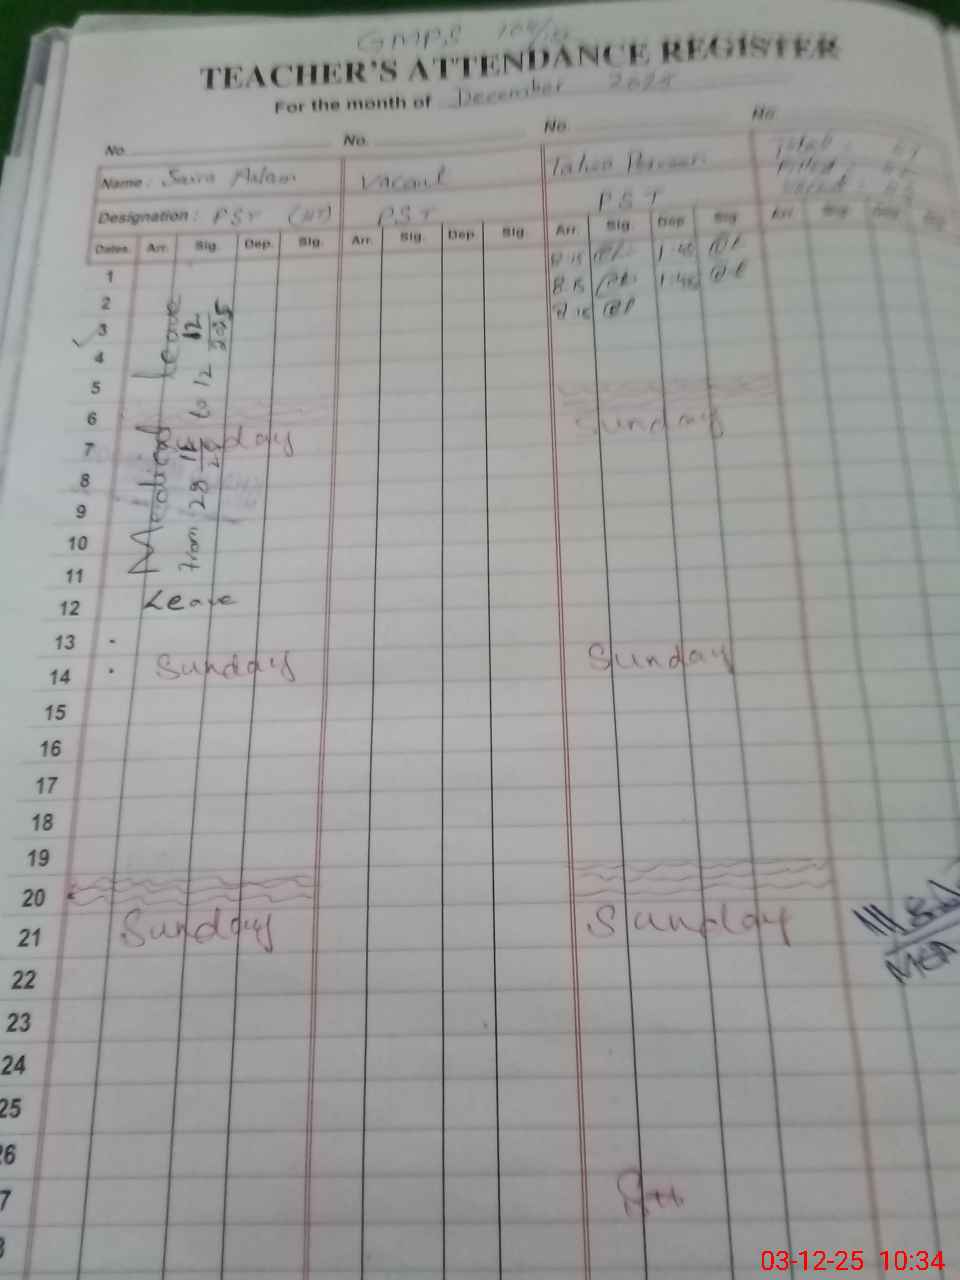 GMPS
TEACHER'S ATTENDANCE REGISTER
For the month of December 2025
No. No. No. No.
Name : Saira Aslam Vacant Parveen Total :
Filled :
Designation : PST (HT) PST PST Vacant :
Dates. Arr. Sig. Dep. Sig. Arr. Sig. Dep. Sig. Arr. Sig. Dep. Sig. Arr. Sig. Dep. Sig.
1 8.15 1.45
2 8.15 1.45
3 8.15
4
5
6 Sunday
7
8
9
10
11
12 Leave
Medical Leave
From 28 to 12 12 2025
13
14 Sunday Sunday
15
16
17
18
19
20
21 Sunday Sunday
22
23
24
25
26
7
03-12-25 10:34